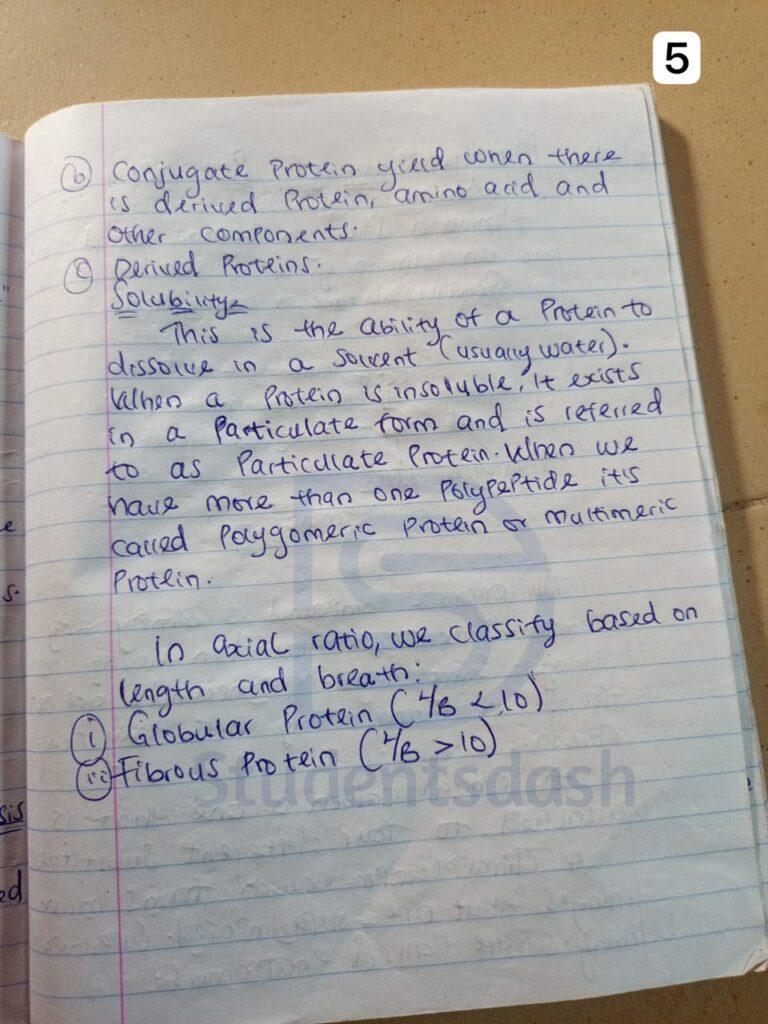 5
(b) Conjugate Protein yield when there
is derived Protein, amino acid and
Other components.
(c) Derived Proteins.
Solubility
This is the ability of a Protein to
dissolve in a solvent (usually water).
When a Protein is insoluble, It exists
in a Particulate form and is referred
to as Particulate Protein. When we
have more than one Polypeptide it's
called Polygomeric Protein or multimeric
Protein.
In axial ratio, we classify based on
length and breath:
(i) Globular Protein (L/B < 10)
(ii) Fibrous Protein (L/B > 10)
Studentsdash
e
s.
sis
ed